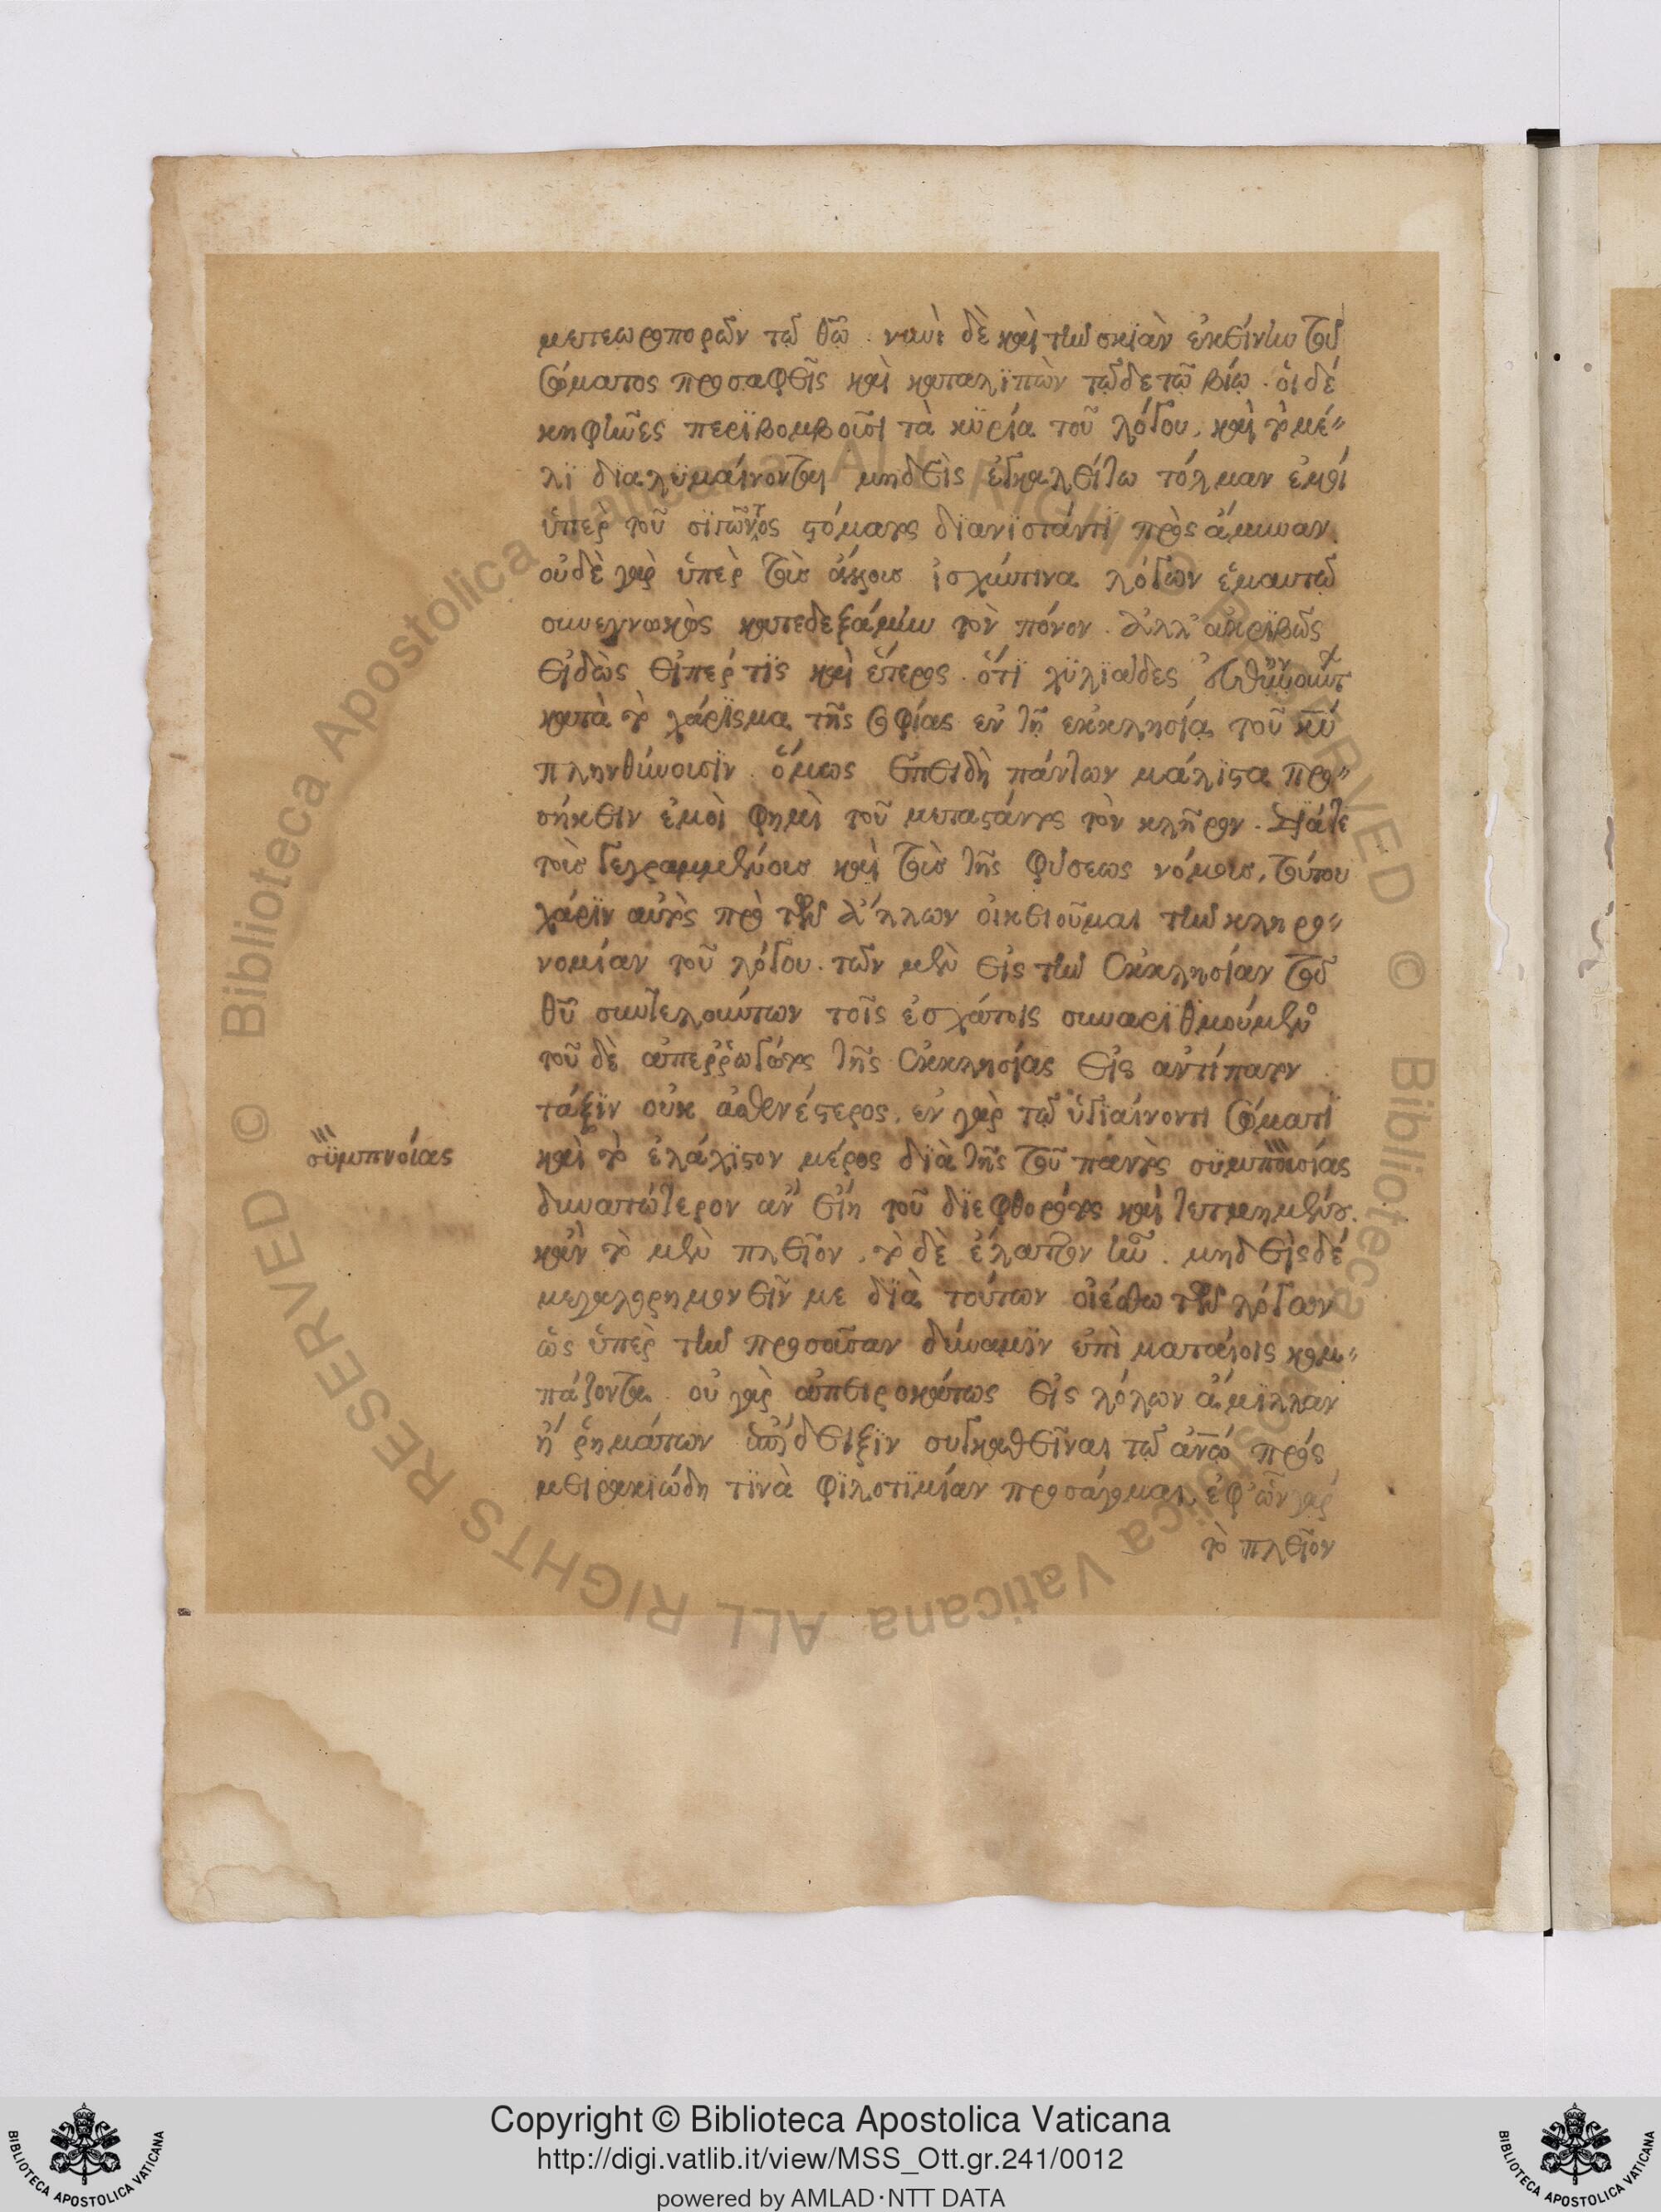 μετεωροπορῶν τῷ θῷ. νυνὶ δὲ καὶ τὴν σκιὰν ἐκείνην τοῦ
σώματος προσαφεὶς καὶ καταλϊπὼν τῷδε τῷ βίῳ. οἱ δέ
κηφῆνες περϊβομβοῦσι τὰ κϋρία τοῦ λόγου, καὶ τὸ μέ
λϊ δϊαλϋμαίνονται μηδεὶς ἐγκαλείτω τόλμαν ἐμοί
ὑπὲρ τοῦ σϊγῶντος στόματος δϊανϊστάντϊ πρὸς ἄμυναν.
οὐδὲ γὰρ ὑπὲρ τοῖς ἄλλοις ἰσχύν τινα λόγων ἐμαυτῷ
συνεγνωκὼς κατεδεξάμην τὸν πόνον. ἀλλ' ἀκρϊβῶς
εἰδὼς εἴπερ τϊς καὶ ἕτερος. ὅτϊ χϋλϊάδες
κατὰ τὸ χάρϊσμα τῆς σοφίας ἐν τῇ ἐκκλησίᾳ τοῦ κυ
πληνθύνουσϊν. ὅμως ἐπειδὴ πάντων μάλϊστα προ
σήκειν ἐμοὶ φημὶ τοῦ μεταστάντος τὸν κλῆρον. διά τε
τοῖς γεγραμμένοις καὶ τοῖς τῆς φύσεως νόμοις, τούτου
χάρϊν αὐτὸς πρὸ τῶν ἄλλων οἰκειοῦμαι τὴν κληρο
νομίαν τοῦ λόγου. τῶν μὲν εἰς τὴν ἐκκλησίαν τοῦ
θῦ συντελούντων τοῖς ἐσχάτοις συναρϊθμούμενος
τοῦ δὲ ἀπερρωγότος τῆς ἐκκλησίας εἰς ἀντίπαλον
τάξϊν οὐκ ἀσθενέστερος, ἐν γὰρ τῷ ὑγϊαίνοντι σώματϊ
καὶ τὸ ἐλάχϊστον μέρος δϊὰ τῆς τοῦ παντὸς
σϋμπνοίας
δυνατώτερον ἂν εἴη τοῦ δϊεφθορότος καὶ τετμημένου.
κἂν τὸ μὲν πλεῖον, τὸ δὲ ἔλαττον ἦν. μηδεὶς δέ
μεγαλορημονεῖν με δϊὰ τούτων οἰέσθω τῶν λόγων
ὡς ὑπὲρ τὴν προσοῦσαν δύναμϊν ἐπὶ ματαίοις κομ
πάζοντα. οὐ γὰρ ἀπειροκάλως εἰς λόγων ἅμϊλλαν
ἢ ῥημάτων ἀπόδειξϊν συγκαθεῖναι τῷ ἀνῷ πρός
μειρακϊώδη τϊνὰ φϊλοτϊμίαν προσάγομαι. ἐφ' ὧν γάρ
τὸ πλεῖον
Copyright © Biblioteca Apostolica Vaticana
http://digi.vatlib.it/view/MSS_Ott.gr.241/0012
powered by AMLAD·NTT DATA
BIBLIOTECA APOSTOLICA VATICANA
BIBLIOTECA APOSTOLICA VATICANA
© Biblioteca Apostolica Vaticana ALL RIGHTS RESERVED © Biblioteca Apostolica Vaticana ALL RIGHTS RESERVED